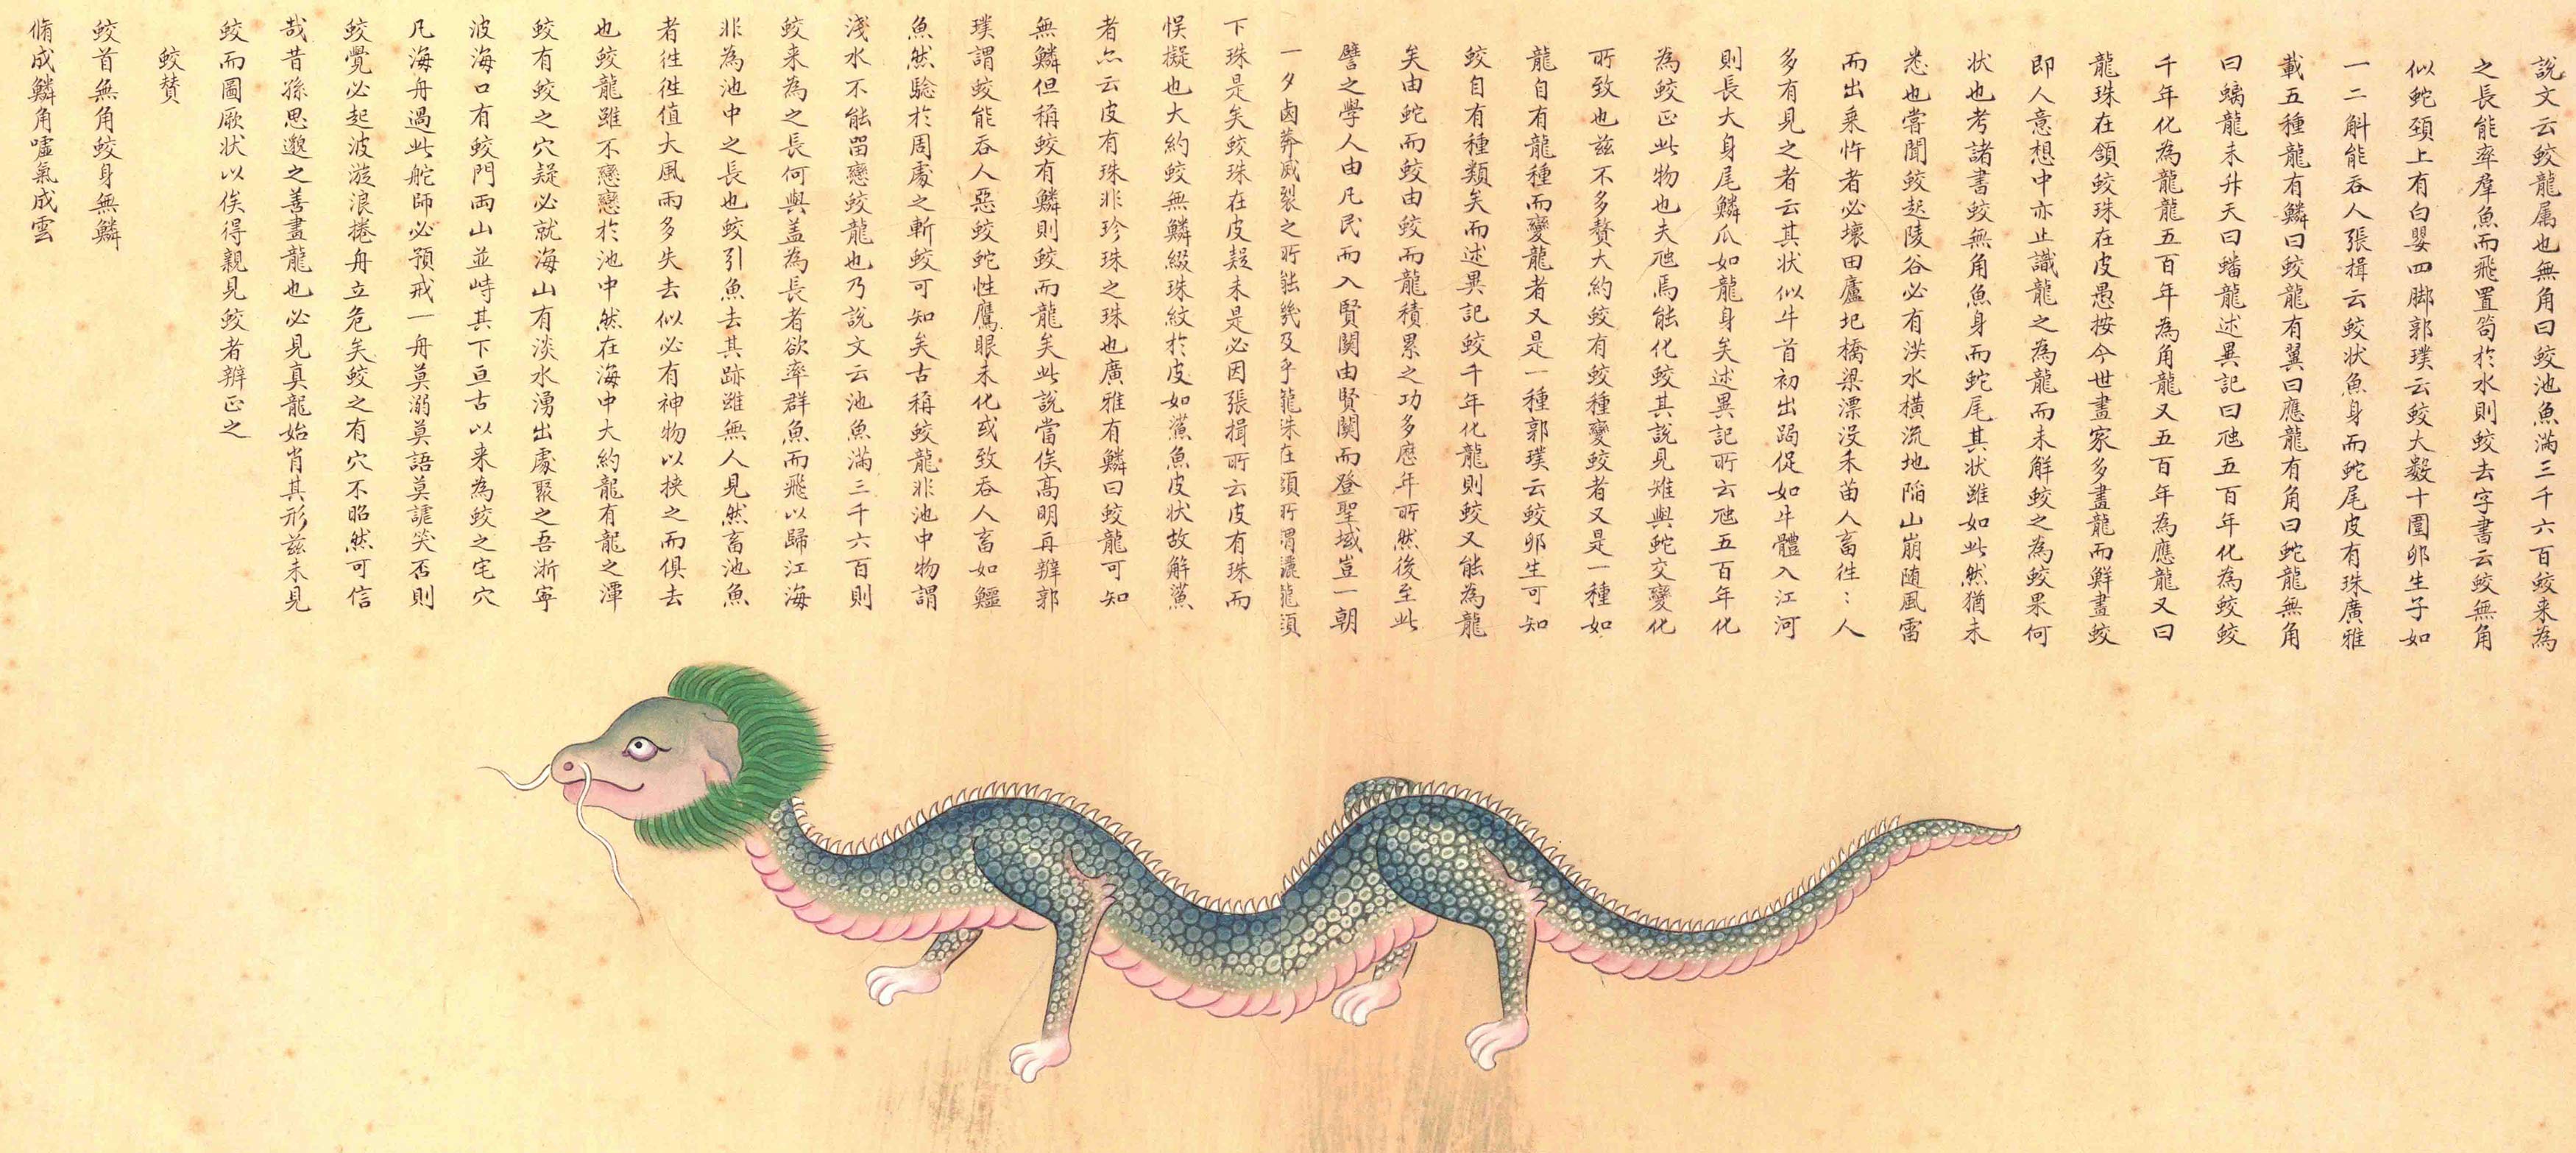 說文云鮫龍属也無角曰鮫池魚滿三千六百鮫来為
之長能率羣魚而飛置笱於水則鮫去字書云鮫無角
似蛇頚上有白嬰四脚郭璞云鮫大數十圍卵生子如
一二斛能吞人張揖云鮫状魚身而蛇尾皮有珠廣雅
載五種龍有鱗曰鮫龍有翼曰應龍有角曰蛇龍無角
曰螭龍未升天曰蟠龍述異記曰虺五百年化為鮫鮫
千年化為龍龍五百年為角龍又五百年為應龍又曰
龍珠在頷鮫珠在皮愚按今世畫家多畫龍而鮮畫鮫
即人意想中亦止識龍之為龍而未解鮫之為鮫果何
状也考諸書鮫無角魚身而蛇尾其状雖如此然猶未
悉也嘗聞鮫起陵谷必有洪水横流地陷山崩随風雷
而出来忤者必壞田廬圯橋梁漂没禾苗人畜徃：人
多有見之者云其状似牛首初出跼促如牛體入江河
則長大身尾鱗爪如龍身矣述異記所云虺五百年化
為鮫正此物也夫虺焉能化鮫其說見雉與蛇交變化
所致也兹不多贅大約鮫有鮫種變鮫者又是一種如
龍自有龍種而變龍者又是一種郭璞云鮫卵生可知
鮫自有種類矣而述異記鮫千年化龍則鮫又能為龍
矣由蛇而鮫由鮫而龍積累之功多歷年所然後至此
譬之學人由凡民而入賢関由賢関而登聖域豈一朝
一夕鹵莽烕裂之所能幾及乎龍珠在頭所謂驪龍頭
下珠是矣鮫珠在皮疑未是必因張揖所云皮有珠而
悮擬也大約鮫無鱗綴珠紋於皮如鯊魚皮状故解鯊
者亦云皮有珠非珍珠之珠也廣雅有鱗曰鮫龍可知
無鱗但稱鮫有鱗則鮫而龍矣此說當俟高明再辨郭
璞謂鮫能吞人惡鮫蛇性鷹眼未化或致吞人畜如鱷
魚然驗於周處之斬鮫可知矣古稱鮫龍非池中物謂
淺水不能畱戀鮫龍也乃說文云池魚滿三千六百則
鮫来為之長何與盖為長者欲率群魚而飛以歸江海
非為池中之長也鮫引魚去其跡雖無人見然畜池魚
者徃徃值大風雨多失去似必有神物以挾之而俱去
也鮫龍雖不戀戀於池中然在海中大約龍有龍之潭
鮫有鮫之穴疑必就海山有淡水湧出處聚之吾浙寕
波海口有鮫門兩山並峙其下亘古以来為鮫之宅穴
凡海舟過此舵師必預戒一舟莫溺莫語莫謔笑否則
鮫覺必起波漩浪捲舟立危矣鮫之有穴不昭然可信
哉昔孫思邈之善畫龍也必見真龍始肖其形兹未見
鮫而圖厥状以俟得親見鮫者辨正之
鮫賛
鮫首無角鮫身無鱗
脩成鱗角嘘氣成雲